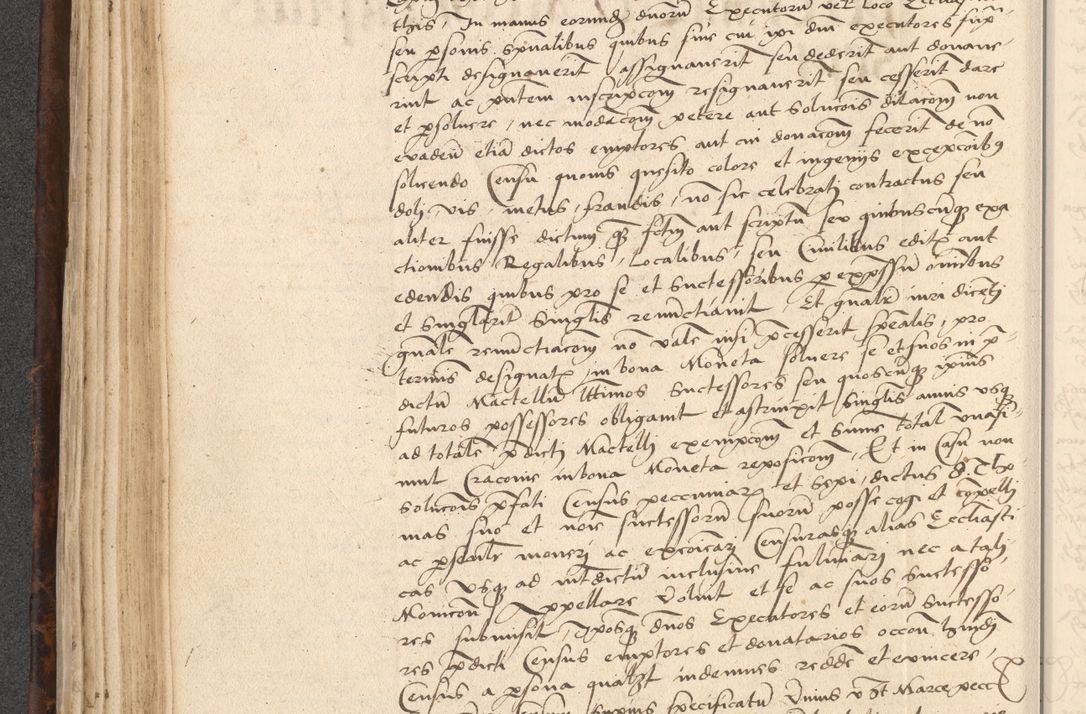 this, In manus eorundem dnorum Executorum vel loco Ecclesiasti
seu psonis spualibus quibus sive cui ipi dni executores supra
scripti designaverit, assignaverit seu dederit aut donave
rint ac pntem inscripcom resignaverit seu cesserit dare
et psolvere, nec modacom petere aut solucois dilacom non
evadendi etia dictos emptores aut cui donacom fecerit de no
solvendo Censu quovis quesito colore et ingeniis excepcoibus
doli, vis, metus, fraudis, no sic celebrati contractus seu
aliter fuisse dictum qz fctm aut scriptu seu quibuscunqz exa
ctionibus Regalibus, Localibus, seu Civilibus editis aut
edendis quibus pro se et successoribus p expssum omnibus
et singlarit singlis renunctiavit, Et gnalem iuri dicenti
gnale renunctiacom no vale nisi pcesserit spealis, pro
termis designatis, in bona Moneta solvere se et suos in p
dictu Mactellu lltimos successores seu quoscunqz ipius
futuros possessores obligavit et astrinxit singlis annis usqz
ad totale pdicti Mactelli exempcom et sume total unasi
mul Cracovie in bona Moneta reposicom, Et in Casu non
solucois pfati Census peccuniarz et sepi, dictus d. Tho
mas suo et noie successoru suoru posse cogi et compelli
ac psonale moneri ac excoicari Censurasqz alias Ecclesiasti
cas usqz ad intdictu inclusive fulminari nec a tali
Monicom Appellare voluit et se ac suos successo
res submisit, Iposqz dnos Executores et eoru Successo
res pdicti Census emptores et donatarios occon hmdi
Census a psona qualzt indemnes reddere et evincere,
supius specificatu Unius